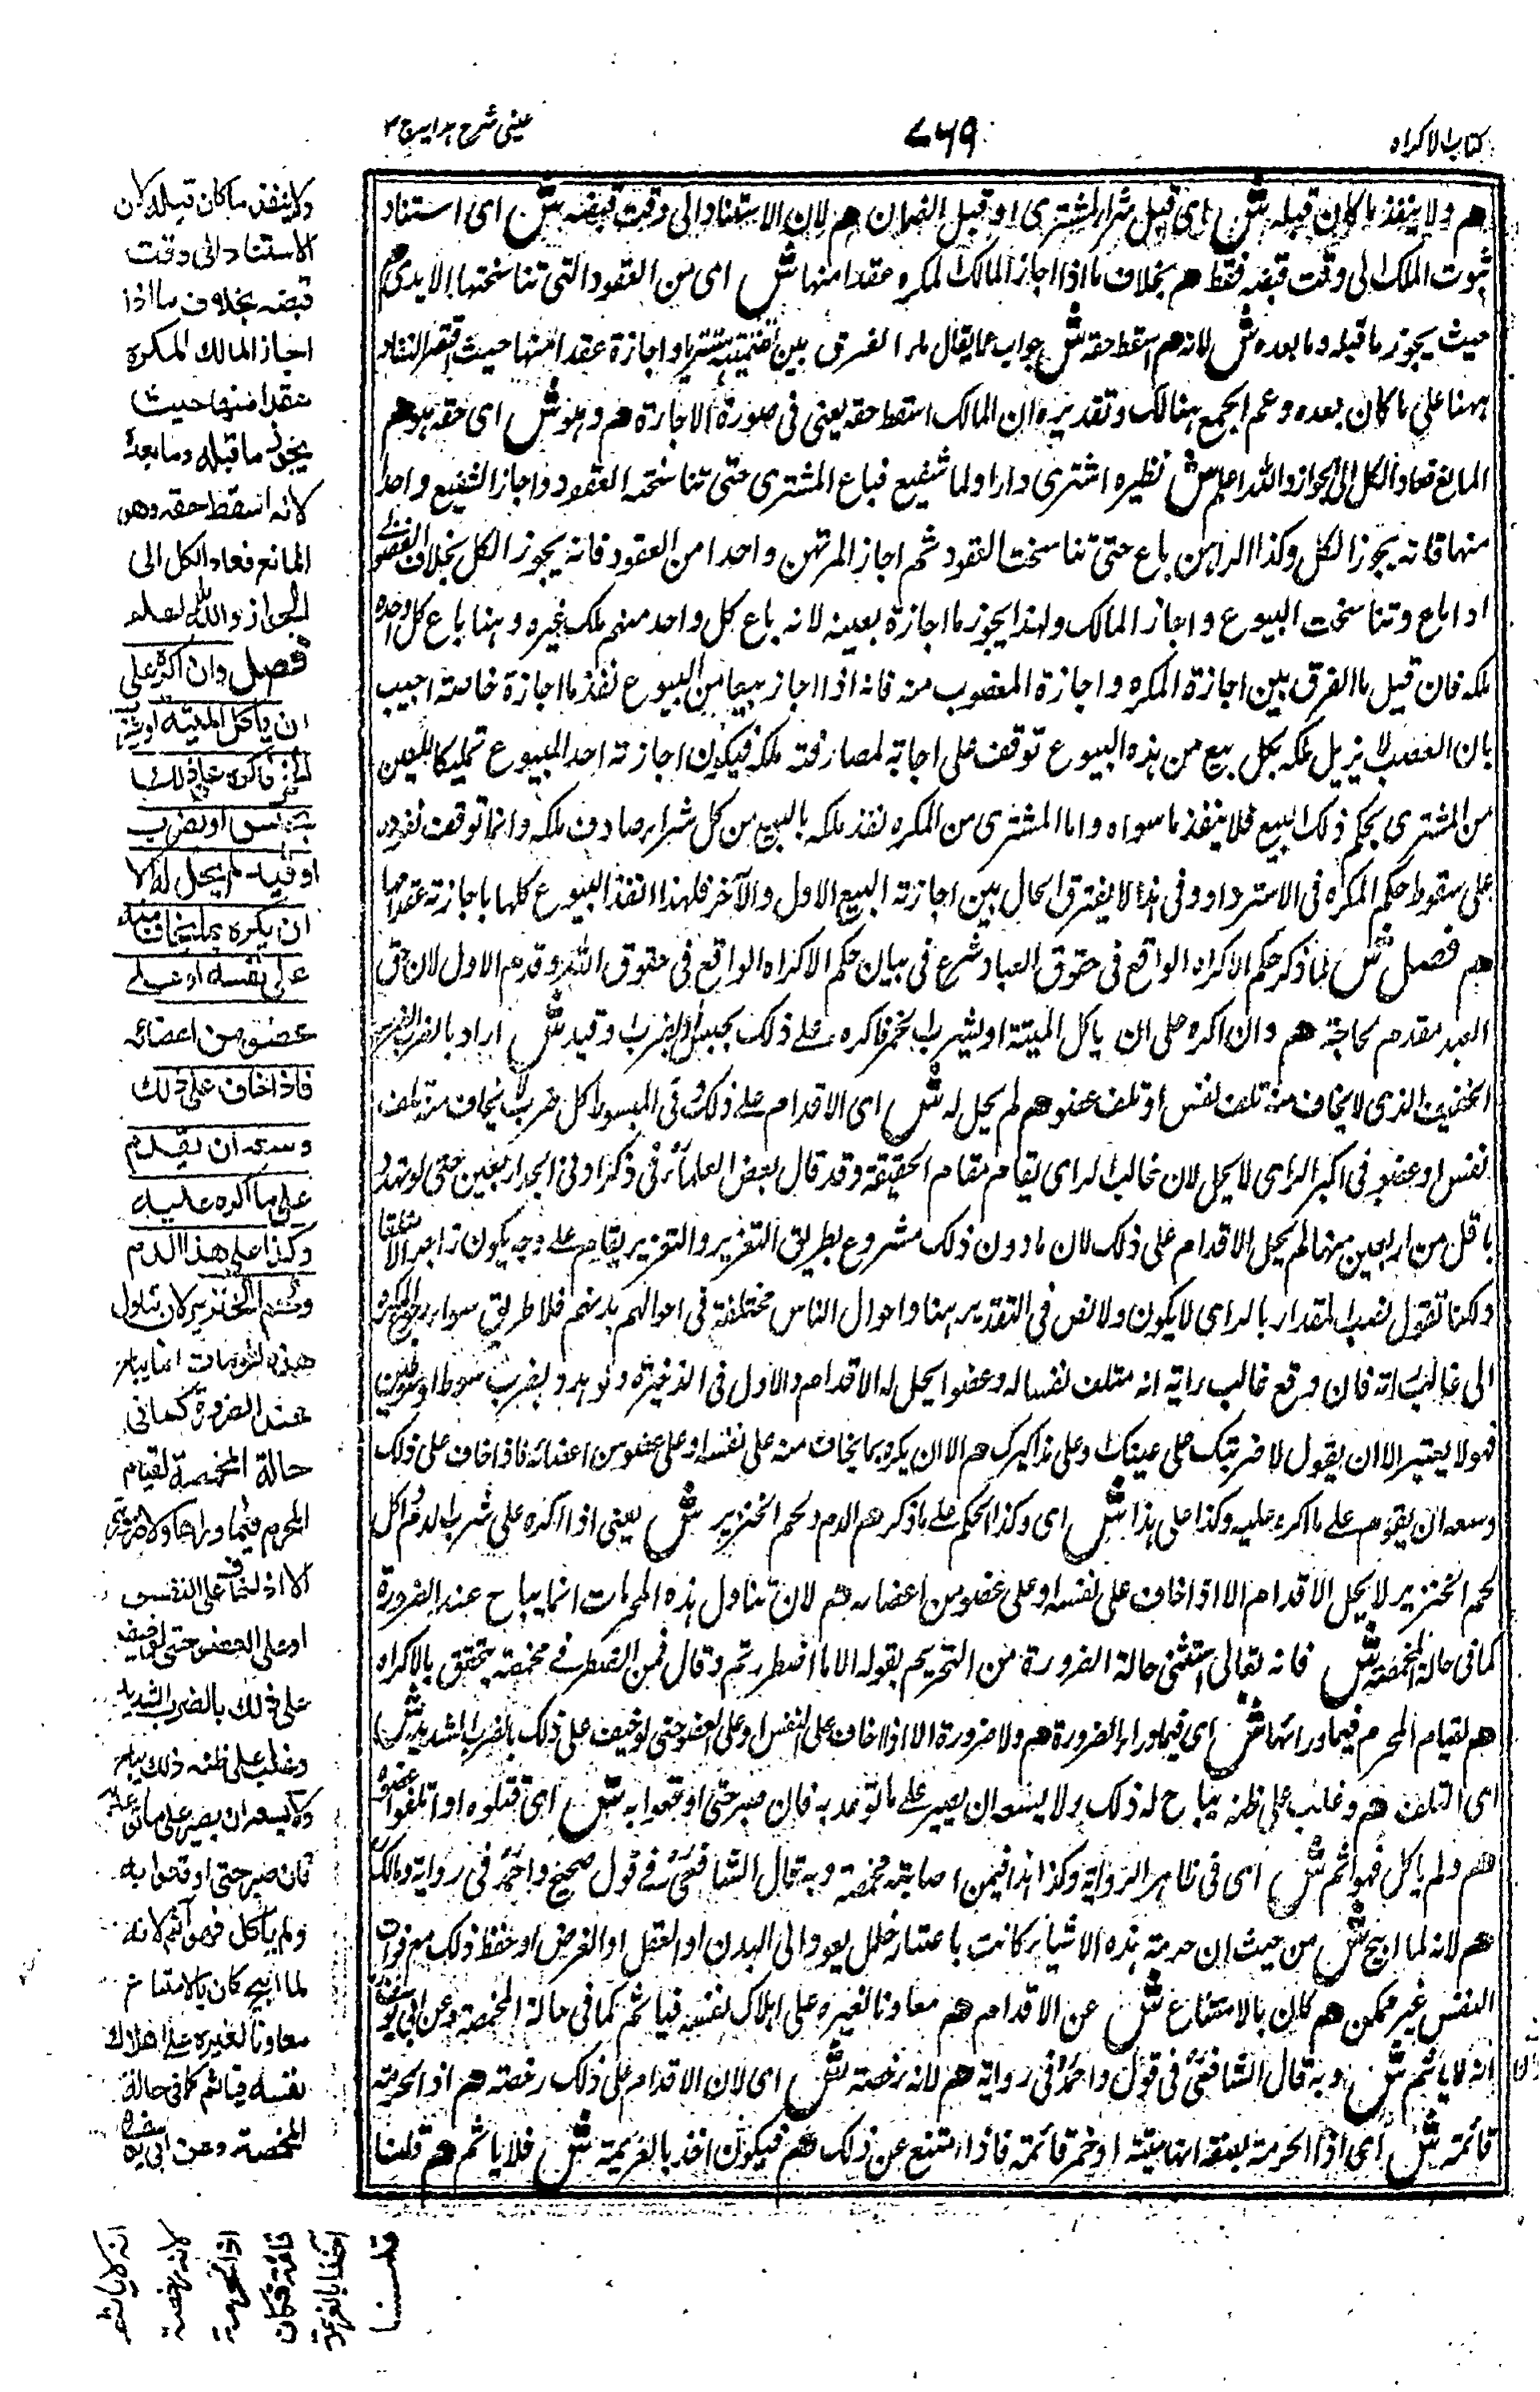 كتاب الاكراه
٧٦٩
عينى شرح هدايه ج ٣
هم ولا ينفذ ما كان قبله ش اى قبل شراء المشترى او قبل الضمان هم لان الاستناد الى وقت قبضه ش اى استناد
ثبوت الملك الى وقت قبضه فقط هم بخلاف ما اذا اجاز المالك المكره عقدا منها ش اى من العقود التى تناسختها الايدى هم
حيث يجوز ما قبله وما بعده ش لانه هم اسقط حقه ش جواب عما يقال ما الفرق بين واجازة عقد منها حيث اقتصر النفاذ
ههنا على ما كان بعده وعم الجميع هنالك وتقديره ان المالك اسقط حقه يعنى فى صورة الاجازة هم وهو ش اى حقه هو هم
المانع فعاد الكل الى الجواز والله اعلم ش نظيره اشترى دارا ولها شفيع فباع المشترى حتى تناسخته العقود واجاز الشفيع واحدا
منها فانه يجوز الكل وكذا الراهن باع حتى تناسخت العقود ثم اجاز المرتهن واحدا من العقود فانه يجوز الكل بخلاف الفضولى
اذا باع وتناسخت البيوع واجاز المالك ولهذا يجوز ما اجازه بعينه لانه باع كل واحد منهم ملك غيره وهنا باع كل واحد
ملكه فان قيل ما الفرق بين اجازة المكره واجازة المغصوب منه فانه اذا اجاز بيعا من البيوع نفذ ما اجازه خاصة اجيب
بان الغصب لا يزيل ملكه بكل بيع من هذه البيوع توقف على اجابة لمصادفته ملكه فيكون اجازته احد المبيوع تمليكا للعين
من المشترى بحكم ذلك البيع فلا ينفذ ما سواه واما المشترى من المكره نفذ ملكه بالبيع من كل شراء صادف ملكه وانما توقفت نفوذه
على سقوط حكم المكره فى الاسترداد وفى هذا لا يفترق الحال بين اجازته البيع الاول والآخر فلهذا انفذ البيوع كلها باجازته عقدا منها
هم فصل ش لما ذكر حكم الاكراه الواقع فى حقوق العباد شرع فى بيان حكم الاكراه الواقع فى حقوق الله وقدم الاول لان حق
العبد مقدم لحاجته هم وان اكره على ان ياكل الميتة او يشرب الخمر فاكره على ذلك بحبس او بضرب وقيد ش اراد بالضرب الضرب
الخفيف الذى لا يخاف منه تلف نفس او تلف عضو هم لم يحل له ش اى الاقدام على ذلك وفى المبسوط كل ضرب لا يخاف منه تلف
نفس او عضو فى اكبر الراى لا يحل لان غالب الراى يقام مقام الحقيقة وقد قال بعض العلماء فى ذكرا دنى الجدار بعين حتى لو تهدد
باقل من اربعين منها لم يحل الاقدام على ذلك لان ما دون ذلك مشروع بطريق التعزير والتعزير يقام على وجه يكون زاجرا لا متلفا
ولكنا نقول نصب المقدار بالراى لا يكون ولا نص فى التقدير هنا واحوال الناس مختلفة فى احوالهم بدنهم فلا طريق سواء رجوع المكره
الى غالب رايه فان وقع غالب رايه انه متلف نفسا له وعضوا يحل له الاقدام والاول فى الذخيرة ولو هدد بضرب سوط او سوطين
فهو لا يعتبر الا ان يقول لاضربنك على عينك وعلى مذاكيرك هم الا ان يكره بما يخاف منه على نفسه او على عضو من اعضائه فاذا خاف على ذلك
وسعه ان يقوم على ما اكره عليه وكذا على هذا ش اى وكذا الحكم على ما ذكر هم الدم ولحم الخنزير ش يعنى اذا اكره على شرب الدم او اكل
لحم الخنزير لا يحل الاقدام الا اذا خاف على نفسه او على عضو من اعضاءه هم لان تناول هذه المحرمات انما يباح عند الضرورة
كما فى حالة المخمصة ش فانه تعالى استثنى حالة الضرورة من التحريم بقوله الا ما اضطررتم وقال فمن اضطر فى مخمصة يتحقق بالاكراه
هم لقيام المحرم فيما وراءها ش اى فيما وراء الضرورة هم ولا ضرورة الا اذا خاف على النفس او على العضو حتى لو خيف على ذلك بالضرب الشديد ش
اى التلف هم وغلب على ظنه يباح له ذلك ولا يسعه ان يصبر على ما توعد به فان صبر حتى اوقعوا به ش اى قتلوه او اتلفوا عضوه
هم ولم ياكل فهو آثم ش اى فى ظاهر الرواية وكذا هذا فيمن اصابته مخمصة وبه قال الشافعى فى قول صحيح واحمد فى رواية ومالك
هم لانه لما ابيح ش من حيث ان حرمة هذه الاشياء كانت باعتبار خلل يعود الى البدن او العقل او الغرض او حفظ ذلك مع فوات
النفس غير ممكن هم كان بالامتناع ش عن الاقدام هم معاونا لغيره على اهلاك نفسه فياثم كما فى حالة المخمصة وعن ابى يوسف
انه لا ياثم ش وبه قال الشافعى فى قول واحمد فى رواية هم لانه رخصة ش اى لان الاقدام على ذلك رخصة هم اذ الحرمة
قائمة ش اى اذ الحرمة بصفة انها ميتة او خمر قائمة فاذا امتنع عن ذلك هم فيكون اخذ بالعزيمة ش فلا ياثم هم قلنا
ولا ينفذ ما كان قبله لان
الاستناد الى وقت
قبضه بخلاف ما اذا
اجاز المالك المكره
عقدا منها حيث
يجوز ما قبله وما بعده
لانه اسقط حقه وهو
المانع فعاد الكل الى
الجواز والله اعلم
فصل وان اكره على
ان ياكل الميتة او يشرب
الخمر فاكره على ذلك
بحبس او بضرب
او قيد لم يحل له الا
ان يكره بما يخاف منه
على نفسه او على
عضو من اعضائه
فاذا خاف على ذلك
وسعه ان يقدم
على ما اكره عليه
وكذا على هذا الدم
ولحم الخنزير لان تناول
هذه المحرمات انما يباح
عند الضرورة كما فى
حالة المخمصة لقيام
المحرم فيما وراءها ولا ضرورة
الا اذا خاف على النفس
او على العضو حتى لو خيف
على ذلك بالضرب الشديد
وغلب على ظنه ذلك يباح
ولا يسعه ان يصبر على ما توعد به
فان صبر حتى اوقعوا به
ولم ياكل فهو آثم لانه
لما ابيح كان بالامتناع
معاونا لغيره على اهلاك
نفسه فياثم كما فى حالة
المخمصة وعن ابى يوسف
انه لا ياثم
لانه رخصة
اذ الحرمة
قائمة فكان
آخذا بالعزيمة
قلنا